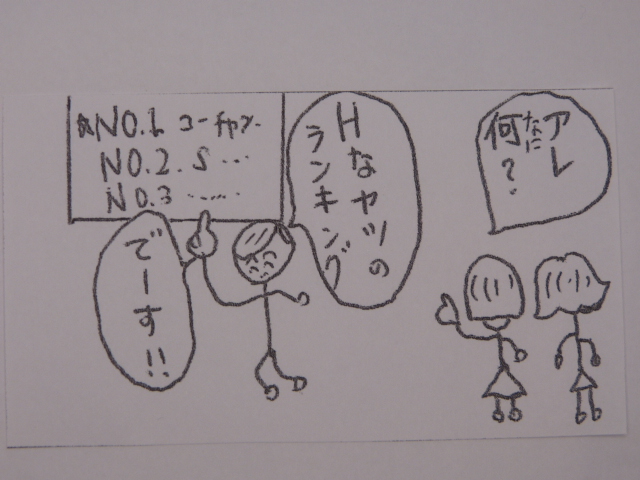 アレ
なに
何?
Hなヤツの
ランキング
でーす!!
NO.1 コーチャン
NO.2. S …
NO.3 ……